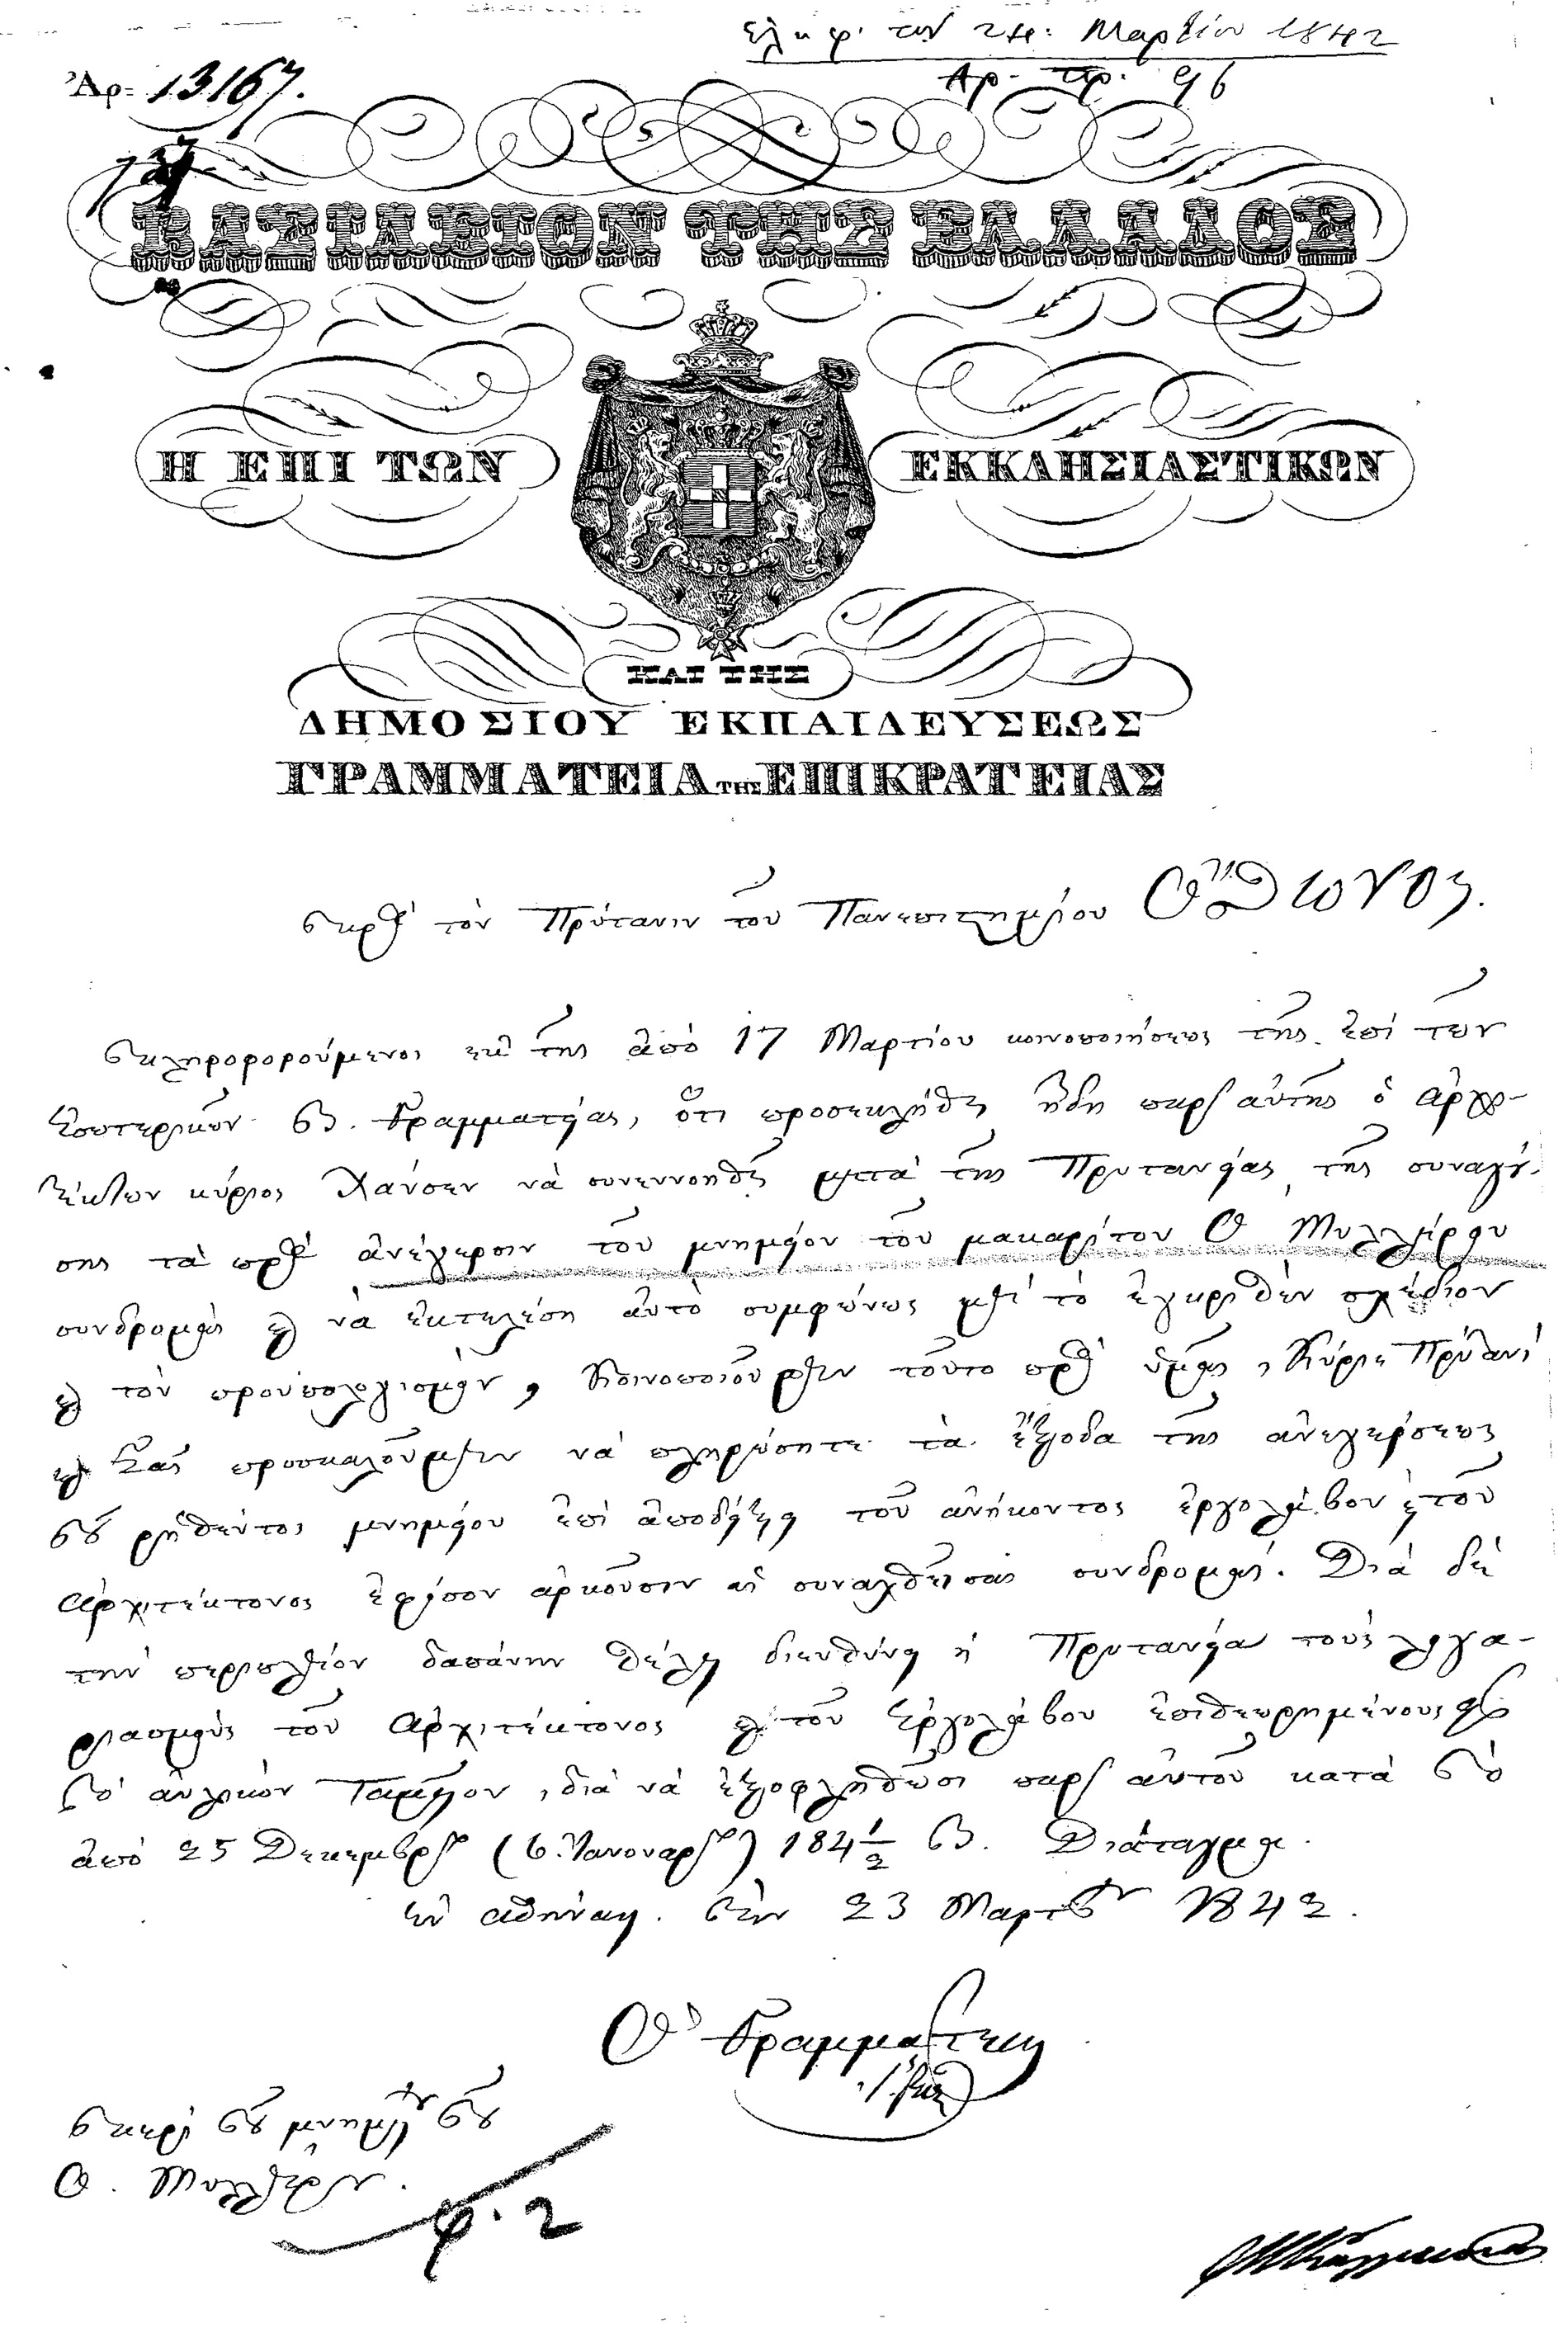 Ἐλήφ. τὴν 24: Μαρτίου 1842
Ἀρ. πρ. 96
Ἀρ= 13167.
ΒΑΣΙΛΕΙΟΝ ΤΗΣ ΕΛΛΑΔΟΣ
Η ΕΠΙ ΤΩΝ ΕΚΚΛΗΣΙΑΣΤΙΚΩΝ
ΚΑΙ ΤΗΣ
ΔΗΜΟΣΙΟΥ ΕΚΠΑΙΔΕΥΣΕΩΣ
ΓΡΑΜΜΑΤΕΙΑ ΤΗΣ ΕΠΙΚΡΑΤΕΙΑΣ
πρὸς τὸν Πρύτανιν τοῦ Πανεπιστημίου Ὄθωνος.
πληροφορούμενοι ἐκ τῆς ἀπὸ 17 Μαρτίου κοινοποιήσεως τῆς ἐπὶ τῶν
Ἐσωτερικῶν Β. Γραμματείας, ὅτι προσεκλήθη ἤδη παρ' αὐτῆς ὁ ἀρχι-
τέκτων κύριος Χάνσεν νὰ συνεννοηθῇ μετὰ τῆς Πρυτανείας τῆς συναξά-
σης τὰς πρὸς ἀνέγερσιν τοῦ μνημείου τοῦ μακαρίτου Ο Μυλλέρου
συνδρομὰς καὶ νὰ ἐκτελέσῃ αὐτὸ συμφώνως μὲ τὸ ἐγκριθὲν σχέδιον
καὶ τὸν προϋπολογισμόν, κοινοποιοῦμεν τοῦτο πρὸς ὑμᾶς, Κύριε Πρύτανι
καὶ Σᾶς προσκαλοῦμεν νὰ πληρώσητε τὰ ἔξοδα τῆς ἀνεγέρσεως
τοῦ ῥηθέντος μνημείου ἐπὶ ἀποδείξει τοῦ ἀνήκοντος ἐργολάβου καὶ τοῦ
ἀρχιτέκτονος ἐφόσον ἀρκοῦσιν αἱ συναχθεῖσαι συνδρομαί. Διὰ δὲ
τὴν περιπλέον δαπάνην θέλει διευθύνει ἡ Πρυτανεία τοὺς λογα-
ριασμοὺς τοῦ ἀρχιτέκτονος καὶ τοῦ ἐργολάβου ἐπιθεωρημένους εἰς
τὸ αὐλικὸν Ταμεῖον, διὰ νὰ ἐξοφληθῶσι παρ' αὐτοῦ κατὰ τὸ
ἀπὸ 25 Δεκεμβρίου (6 Ἰανουαρίου) 184 1/2 Β. Διάταγμα.
ἐν Ἀθήναις. τὴν 23 Μαρτίου 1842.
Ὁ Γραμματεὺς
περὶ τοῦ μνημείου τοῦ
Ο. Μυλλέρου.
φ. 2